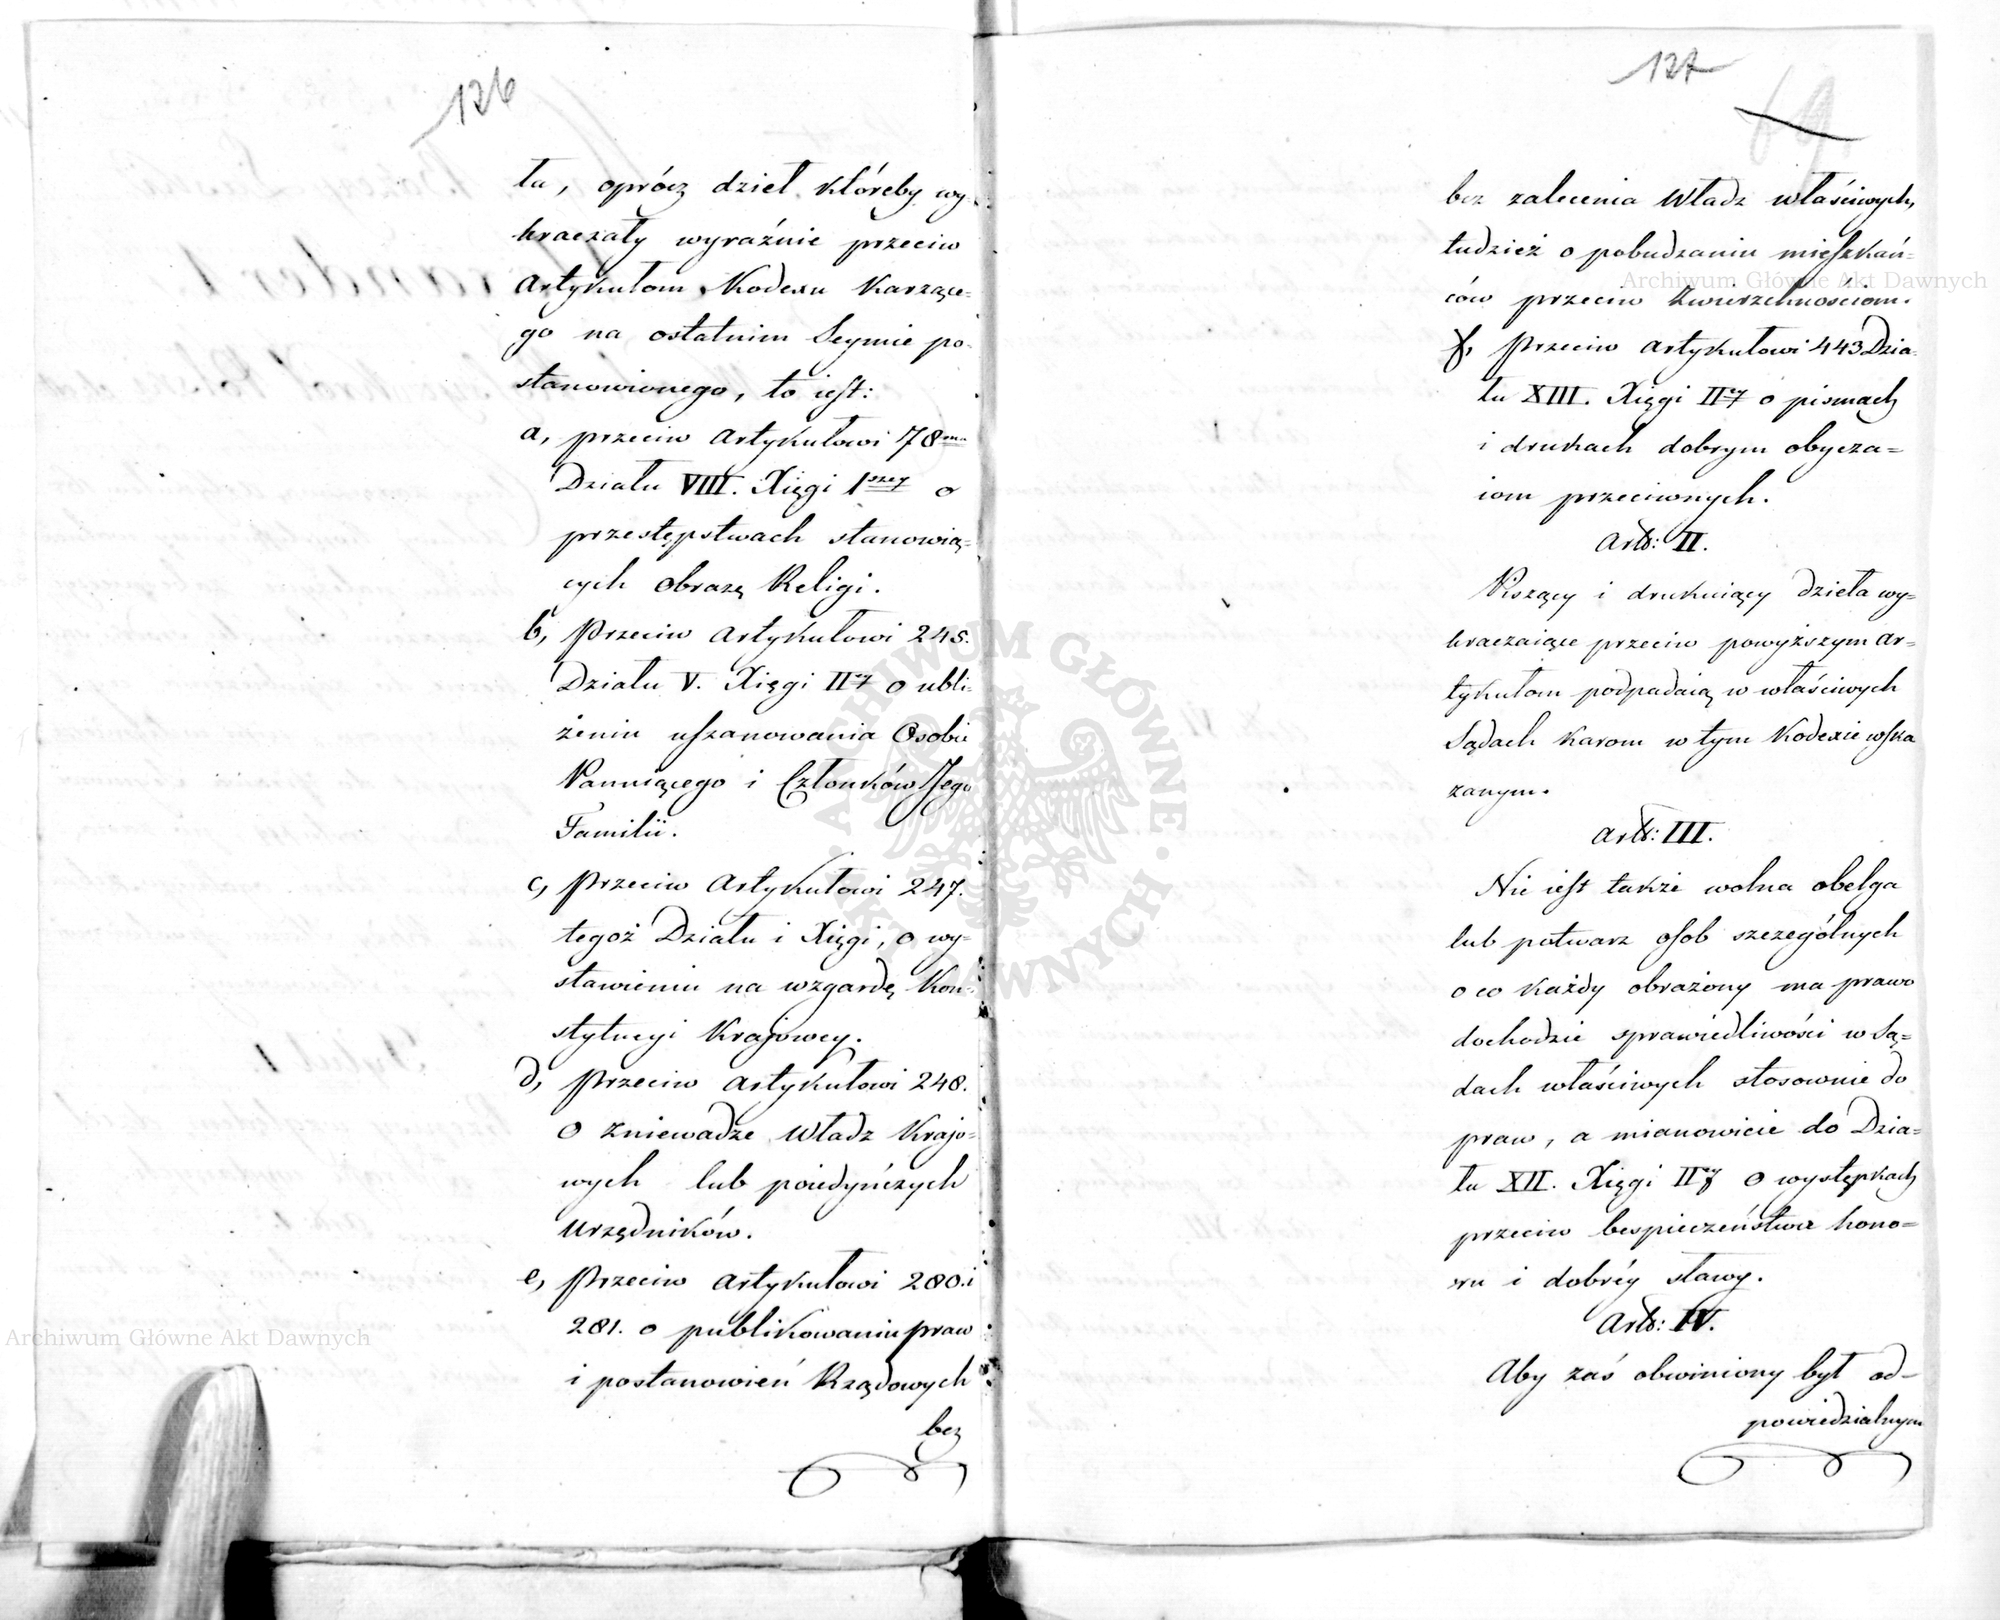 126
ła, oprócz dzieł któreby wy-
kraczały wyraźnie przeciw
Artykułom Kodexu Karzące-
go na ostatnim Seymie po-
stanowionego, to iest:
a, przeciw Artykułowi 78mu
Działu VIII. Xięgi 1szey o
przestępstwach stanowią-
cych obrazę Religi.
b, Przeciw Artykułowi 245.
Działu V. Xięgi IIey o ubli-
żeniu uszanowania Osobie
Panuiącego i Członków Jego
Familii.
c, Przeciw Artykułowi 247.
tegoż Działu i Xięgi, o wy-
stawieniu na wzgardę Kon-
stytucyi Krajowey.
d, Przeciw Artykułowi 248.
o zniewadze Władz Krajo-
wych lub poiedyńczych
Urzędników.
e, Przeciw Artykułowi 280. i
281. o publikowaniu praw
i postanowień Rządowych
bez
127
69
bez zalecenia Władz właściwych,
tudzież o pobudzaniu mieszkań-
ców przeciw Zwierzchnościom.
f, Przeciw Artykułowi 443 Dzia-
łu XIII. Xięgi IIey o pismach
i drukach dobrym obycza-
iom przeciwnych.
Art: II.
Piszący i drukuiący dzieła wy-
kraczaiące przeciw powyższym Ar-
tykułom podpadaią w właściwych
Sądach karom w tym Kodexie wska
zanym.
Art: III.
Nie iest także wolna obelga
lub potwarz osob szczególnych
o co każdy obrażony ma prawo
dochodzić sprawiedliwości w Są-
dach właściwych stosownie do
praw, a mianowicie do Dzia-
łu XII. Xięgi IIey o występkach
przeciw bespieczeństwa hono-
ru i dobréy sławy.
Art: IV.
Aby zaś obwiniony był od-
powiedzialnym
Archiwum Główne Akt Dawnych
Archiwum Główne Akt Dawnych
ARCHIWUM GŁÓWNE AKT DAWNYCH